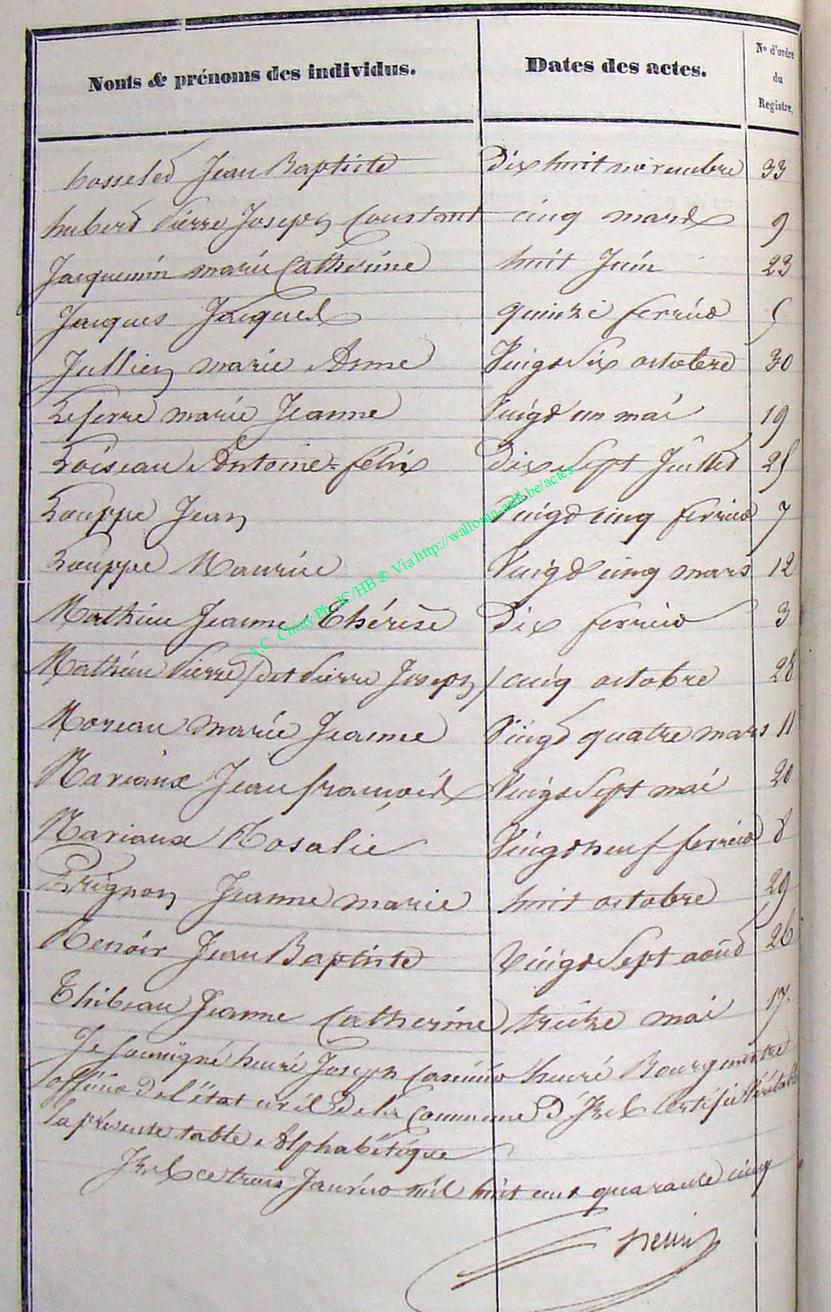 Noms & prénoms des individus. Dates des actes. N° d'ordre du Registre.
hosseled Jean Baptiste Dix huit novembre 33
hubert Pierre Joseph Constant cinq mars 9
Jacquemin marie Catherine huit Juin 23
Jacques Jacques quinze fevrier 5
Jullien marie Anne Vingt six octobre 30
Lefevre marie Jeanne Vingt un mai 19
Loiseau Antoine-félix Dix sept Juillet 25
Louppe Jean Vingt cinq fevrier 7
Louppe Maurice Vingt cinq mars 12
Mathieu Jeanne Thérèse Dix fevrier 3
Mathieu Pierre / dit Pierre Joseph / cinq octobre 28
Moreau marie Jeanne Vingt quatre mars 11
Mariaux Jean françois Vingt sept mai 20
Mariaux Rosalie Vingt neuf fevrier 8
Prignon Jeanne marie huit octobre 29
Renoir Jean Baptiste Vingt Sept août 26
Thibeau Jeanne Catherine treize mai 17.
Je soussigné henri Joseph Casimir henri Bourgmestre
officier de l'état civil de la Commune D'Izel Certifie Véritable
la présente table Alphabétique
Izel ce trois Janvier mil huit cent quarante cinq
henri
A.C. Chiny Ph JC/HB ® Via http://wallonia-asbl.be/actes